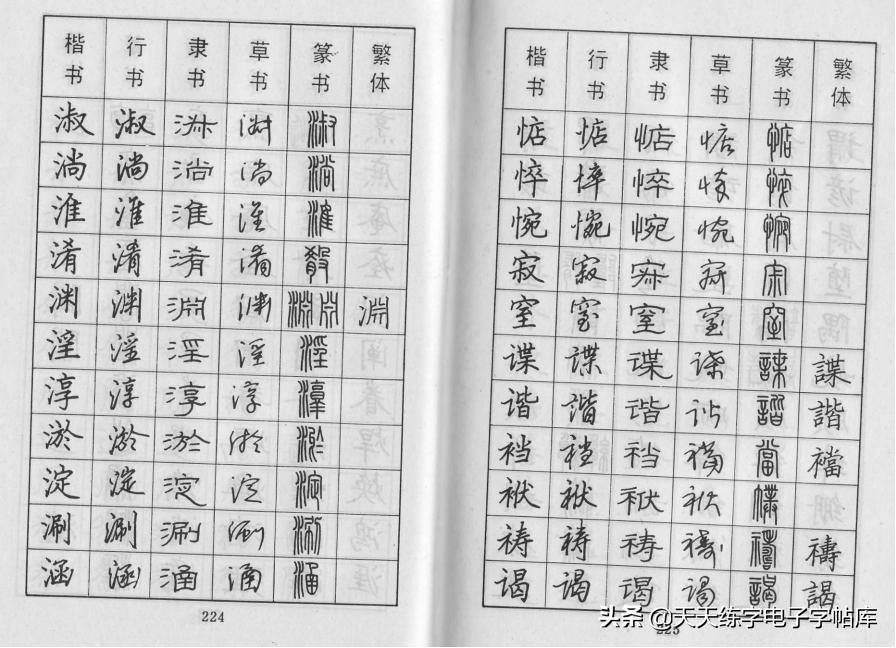 楷书 行书 隶书 草书 篆书 繁体
淑 淑 淑 淑 淑
淌 淌 淌 淌 淌
淮 淮 淮 淮 淮
淆 淆 淆 淆 殽
渊 渊 淵 渊 淵 淵
淫 淫 淫 淫 淫
淳 淳 淳 淳 淳
淤 淤 淤 淤 淤
淀 淀 淀 淀 淀
涮 涮 涮 涮 涮
涵 涵 涵 涵 涵
224
楷书 行书 隶书 草书 篆书 繁体
惦 惦 惦 惦 惦
悴 悴 悴 悴 悴
惋 惋 惋 惋 惋
寂 寂 寂 寂 寂
窒 窒 窒 窒 窒
谍 谍 谍 谍 諜 諜
谐 谐 谐 谐 諧 諧
裆 裆 裆 裆 當 襠
袱 袱 袱 袱
祷 祷 祷 祷 禱 禱
谒 谒 谒 谒 謁 謁
225
头条 @天天练字电子字帖库